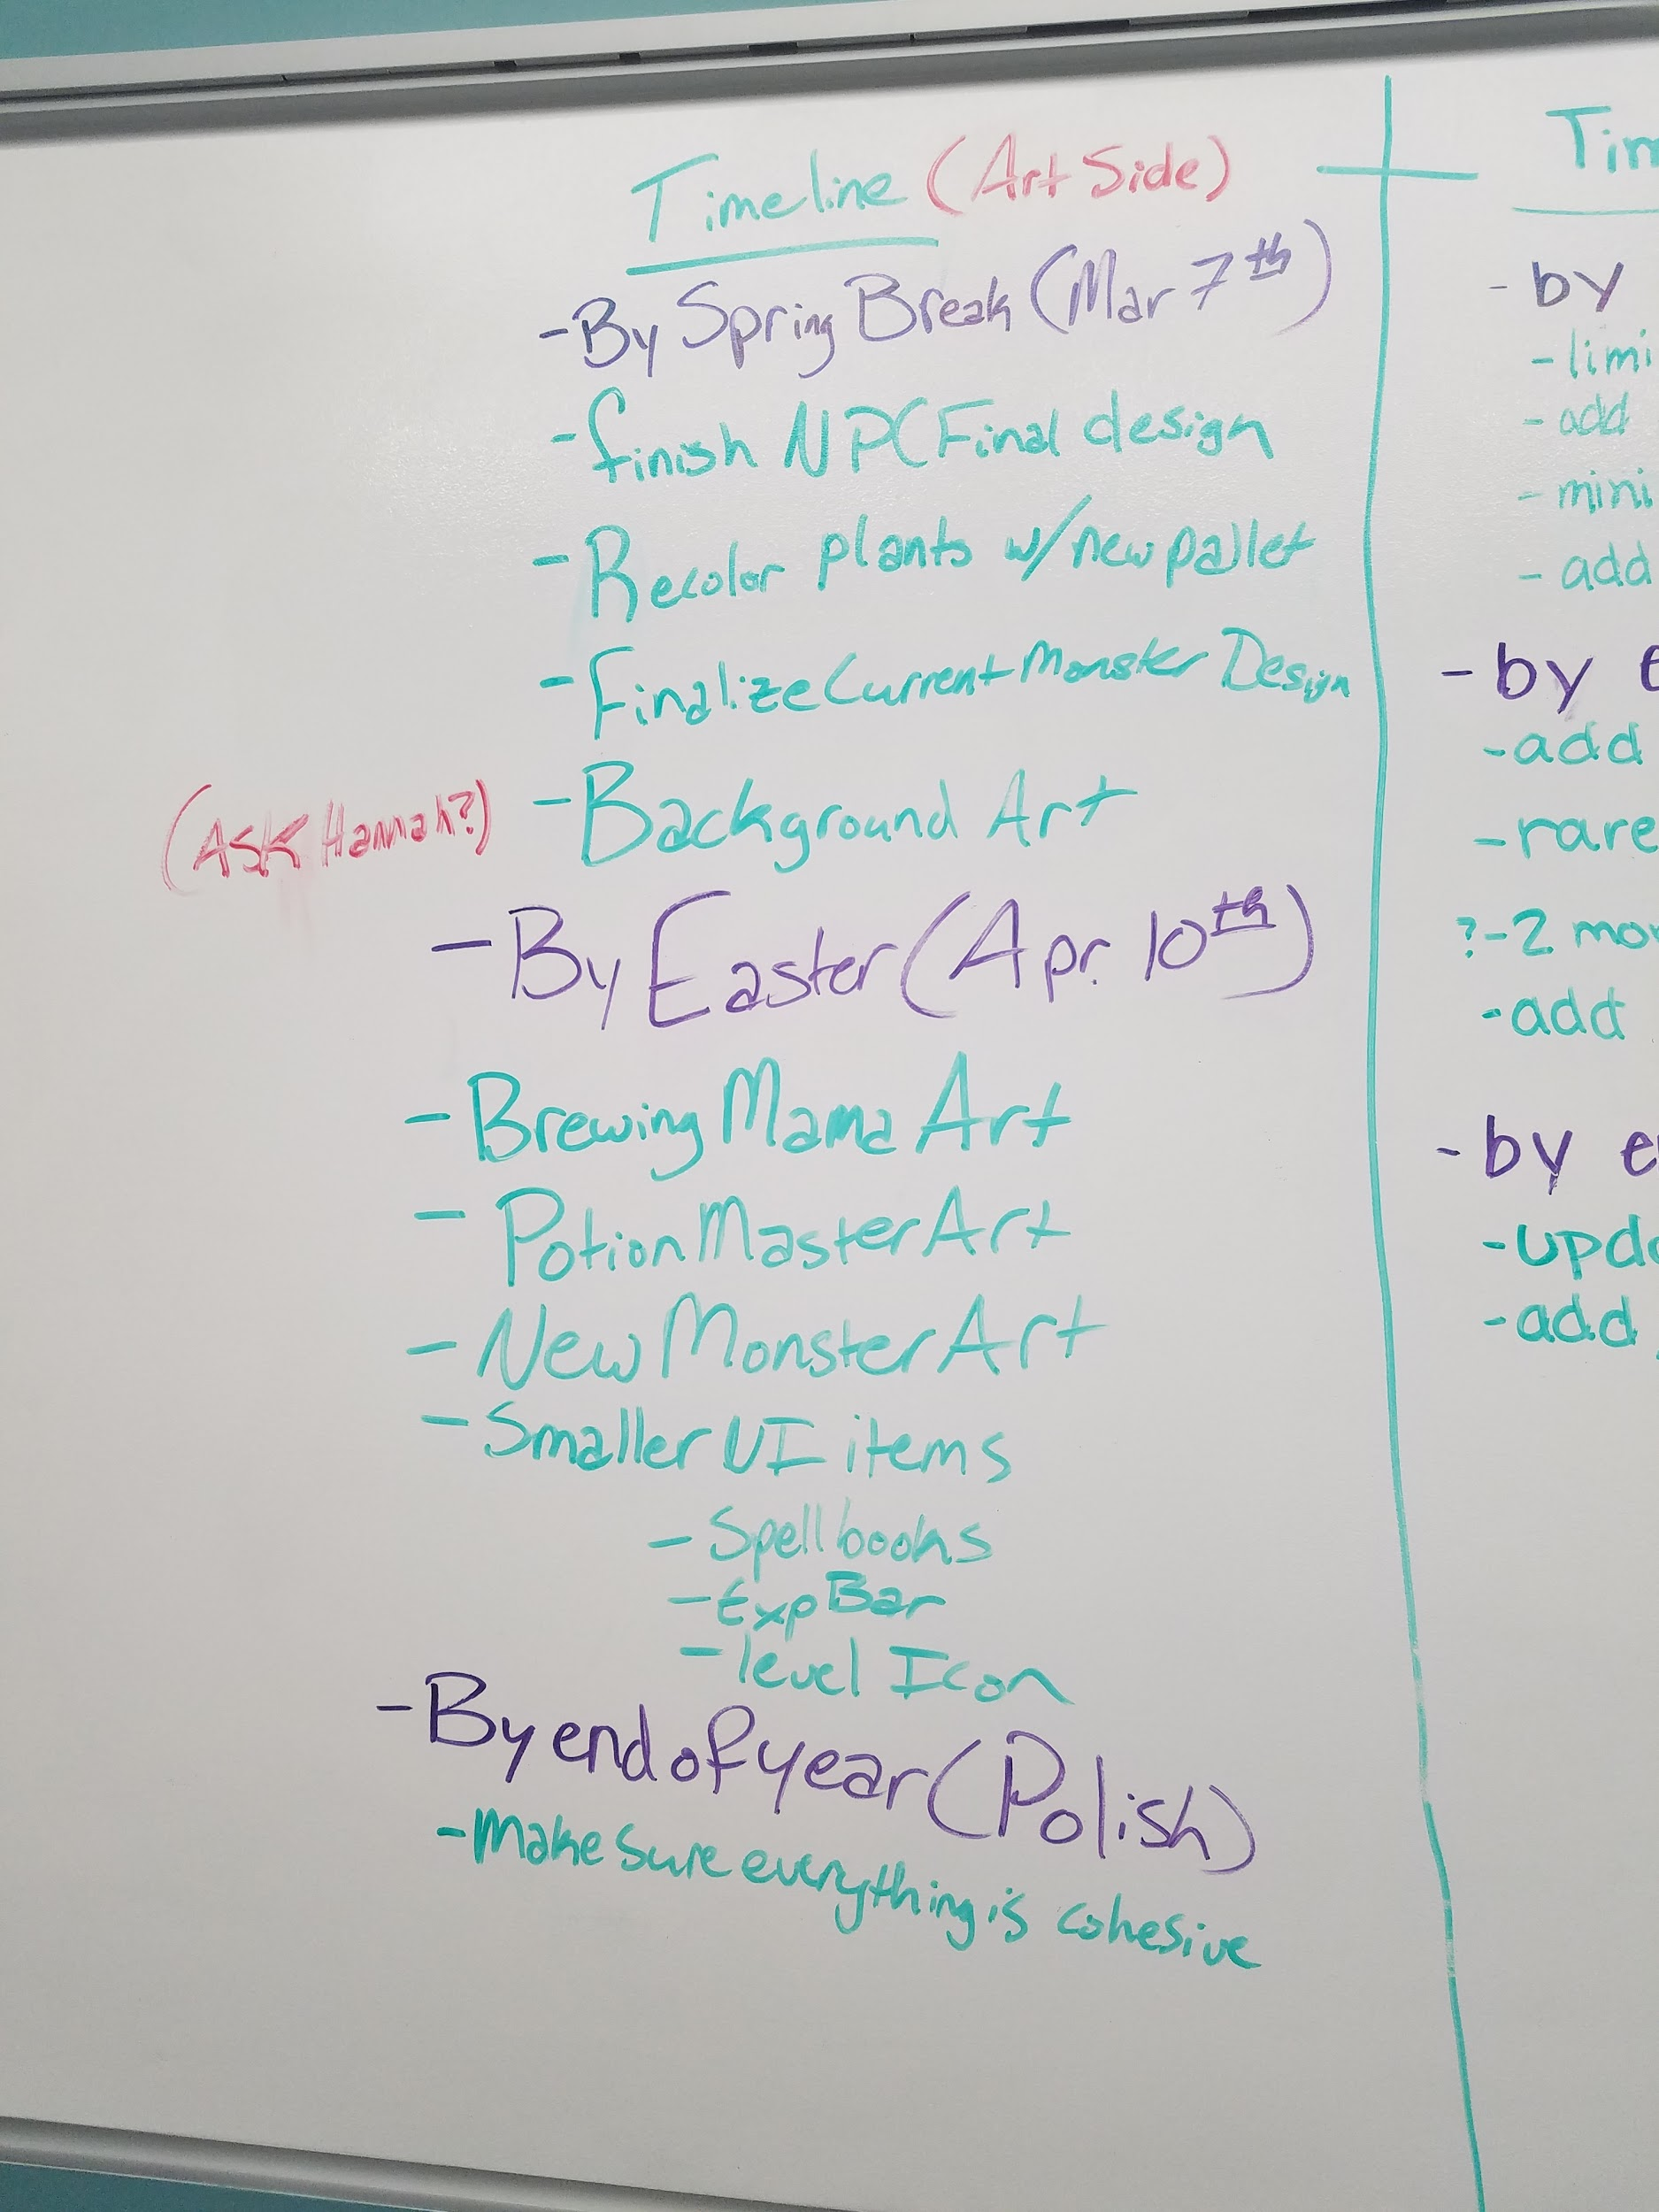 Timeline (Art Side)
- By Spring Break (Mar 7th)
- finish NPC Final design
- Recolor plants w/ new pallet
- Finalize Current Monster Design
(Ask Hannah?) - Background Art
- By Easter (Apr. 10th)
- Brewing Mama Art
- Potion Master Art
- New Monster Art
- Smaller UI items
- Spellbooks
- Exp Bar
- level Icon
- By end of year (Polish)
- Make Sure everything is cohesive
- by
- add
- mini
- add
- by
- add
- rare
? - 2
- add
- by
- add